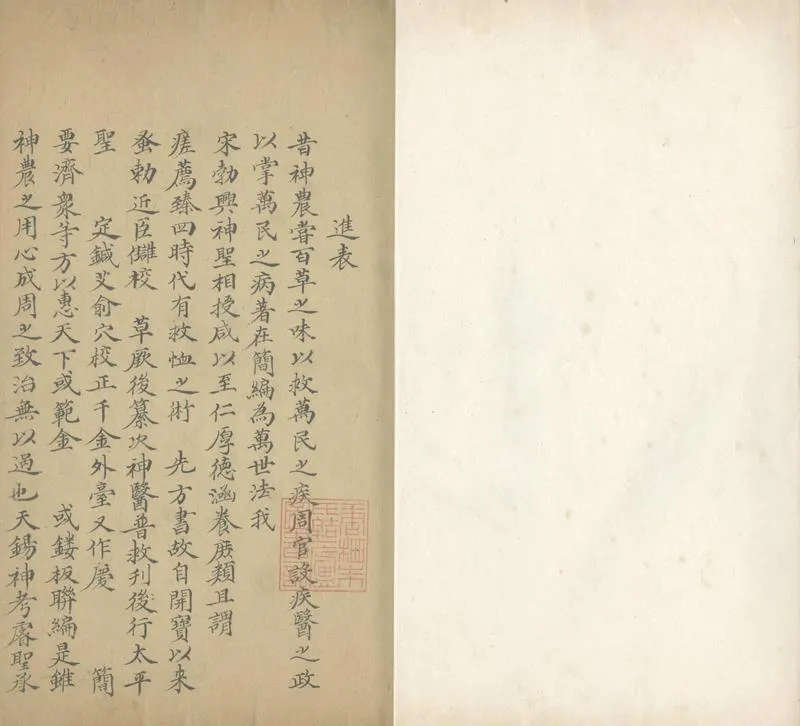 進表
昔神農嘗百草之味以救萬民之疾周官設疾醫之政
以掌萬民之病著在簡編為萬世法我
宋勃興神聖相授咸以至仁厚德涵養庶類且謂
瘥薦臻四時代有救恤之術 先方書故自開寶以来
蚤勅近臣讎校 草厥後纂次神醫普救刋後行太平
聖 定鍼艾俞穴校正千金外臺又作慶 簡
要濟衆等方以惠天下或範金 或鏤板聯編是雖
神農之用心成周之致治無以過也天錫神考睿聖承